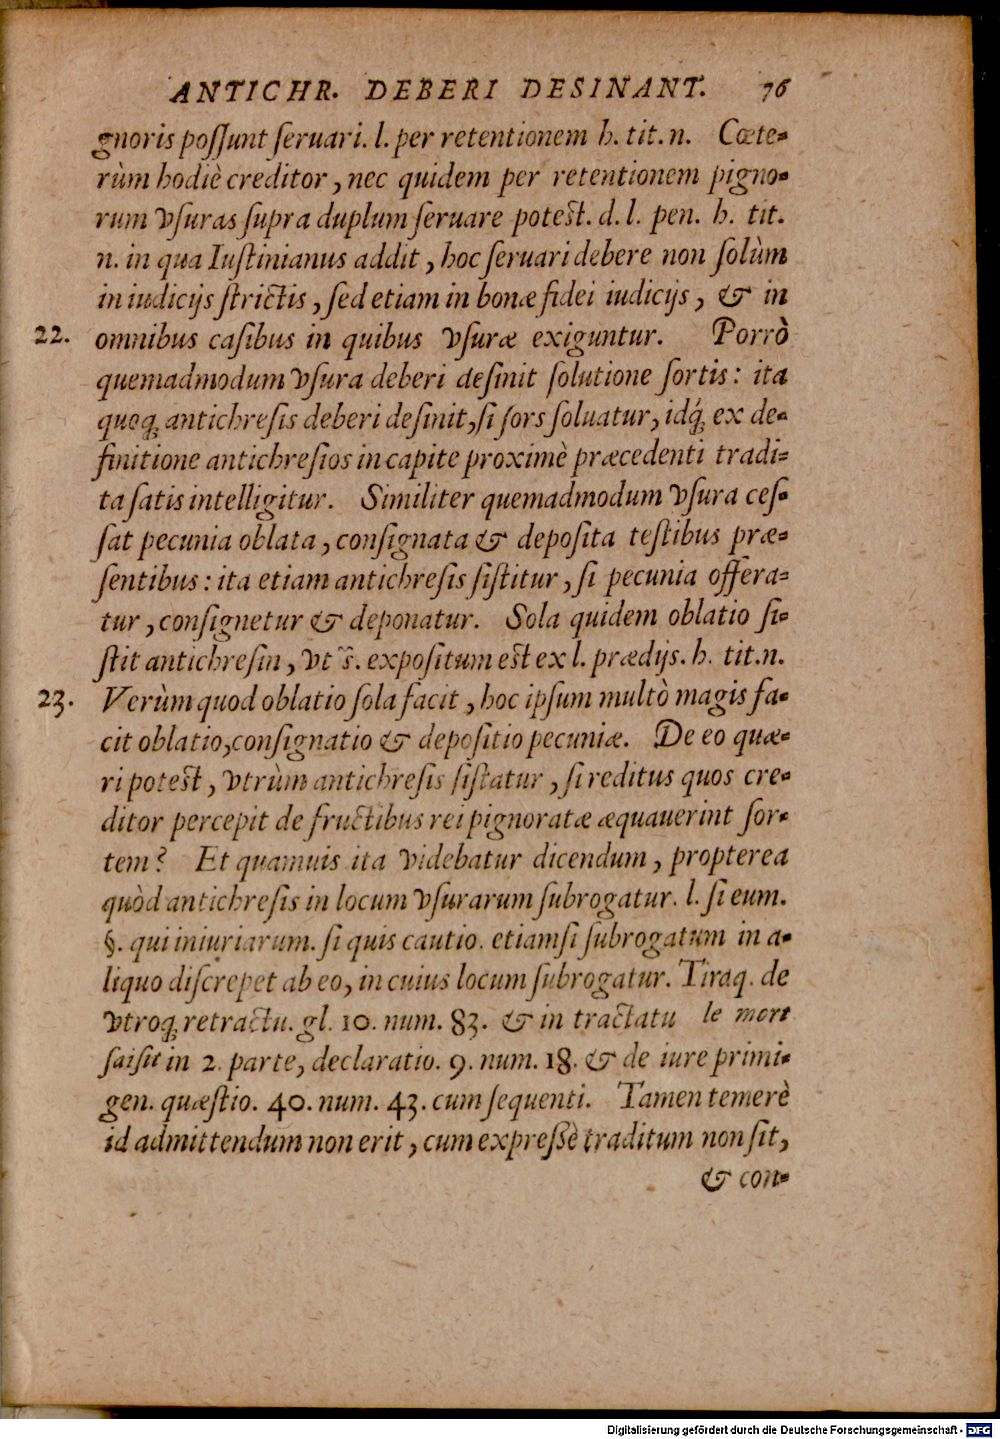 ANTICHR. DEBERI DESINANT. 76
gnoris poſſunt ſeruari. l. per retentionem h. tit. n. Cœte-
rùm hodiè creditor, nec quidem per retentionem pigno-
rum vſuras ſupra duplum ſeruare poteſt. d. l. pen. h. tit.
n. in qua Iuſtinianus addit, hoc ſeruari debere non ſolùm
in iudicijs ſtrictis, ſed etiam in bonæ fidei iudicijs, & in
22. omnibus caſibus in quibus vſuræ exiguntur. Porrò
quemadmodum vſura deberi deſinit ſolutione ſortis: ita
quoq; antichreſis deberi deſinit, ſi ſors ſoluatur, idq́; ex de-
finitione antichreſios in capite proximè præcedenti tradi-
ta ſatis intelligitur. Similiter quemadmodum vſura ceſ-
ſat pecunia oblata, conſignata & depoſita teſtibus præ-
ſentibus: ita etiam antichreſis ſiſtitur, ſi pecunia offera-
tur, conſignetur & deponatur. Sola quidem oblatio ſi-
ſtit antichreſin, vt ſ. expoſitum eſt ex l. prædijs. h. tit. n.
23. Verùm quod oblatio ſola facit, hoc ipſum multò magis fa-
cit oblatio, conſignatio & depoſitio pecuniæ. De eo quæ-
ri poteſt, vtrùm antichreſis ſiſtatur, ſi reditus quos cre-
ditor percepit de fructibus rei pignoratæ æquauerint ſor-
tem? Et quamuis ita videbatur dicendum, propterea
quòd antichreſis in locum vſurarum ſubrogatur. l. ſi eum.
§. qui iniuriarum. ſi quis cautio. etiamſi ſubrogatum in a-
liquo diſcrepet ab eo, in cuius locum ſubrogatur. Tiraq. de
vtroq; retractu. gl. 10. num. 83. & in tractatu le mort
ſaiſit in 2. parte, declaratio. 9. num. 18. & de iure primi-
gen. quæſtio. 40. num. 43. cum ſequenti. Tamen temerè
id admittendum non erit, cum expreſſè traditum non ſit,
& con-
Digitalisierung gefördert durch die Deutsche Forschungsgemeinschaft - DFG